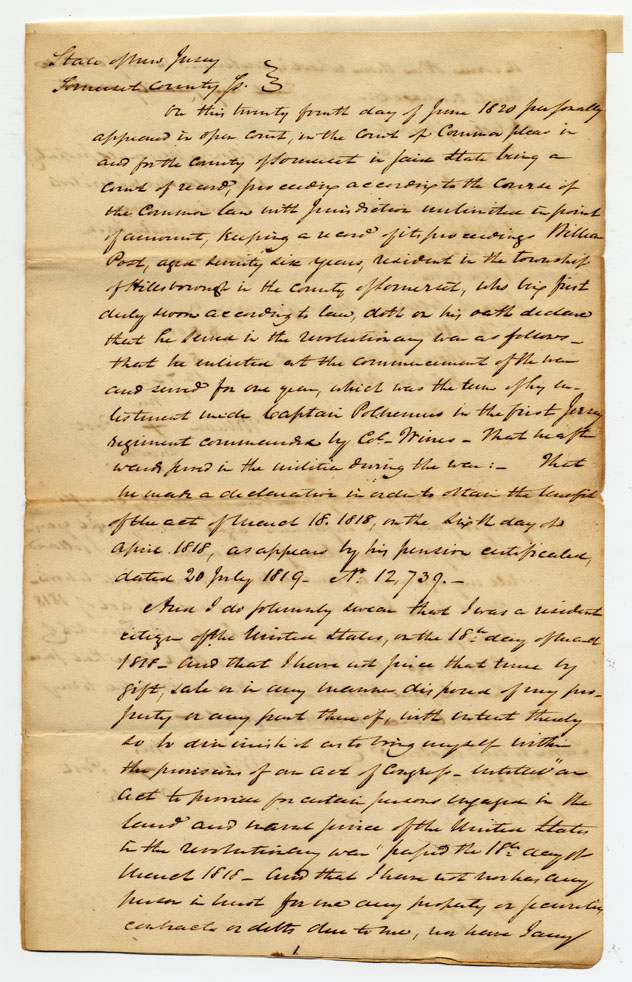 State of New Jersey
Somerset County Ss. }
On this twenty fourth day of June 1820 personally
appeared in open Court, in the Court of Common pleas in
and for the county of Somerset in said State being a
Court of record, proceeding according to the Course of
the Common law with Jurisdiction unlimited in point
of amount, keeping a record of its proceedings William
Post, aged seventy six years, resident in the township
of Hillsborough in the county of Somerset, who being first
duly sworn according to law, doth on his oath declare
that he served in the revolutionary war as follows –
that he enlisted at the commencement of the war
and served for one year, which was the term of his en-
listment under Captain Polhemus in the first Jersey
regiment commanded by Col– Wines – That he after
wards served in the militia during the war: – That
he made a declaration in order to obtain the benefit
of the act of March 18. 1818, on the sixth day of
April 1818, as appears by his pension certificate,
dated 20 July 1819 – No. 12,739. –
And I do solemnly swear that I was a resident
citizen of the United States, on the 18th day of March
1818 – And that I have not since that time by
gift, sale or in any manner disposed of my pro-
perty or any part thereof, with intent thereby
so to diminish it as to bring myself within
the provisions of an act of Congress – entitled "an
Act to provide for certain persons engaged in the
land and naval service of the United States
in the revolutionary war" passed the 18th day of
March 1818 – And that I have not nor has any
person in trust for me any property or securities
contracts or debts due to me, nor have I any
1